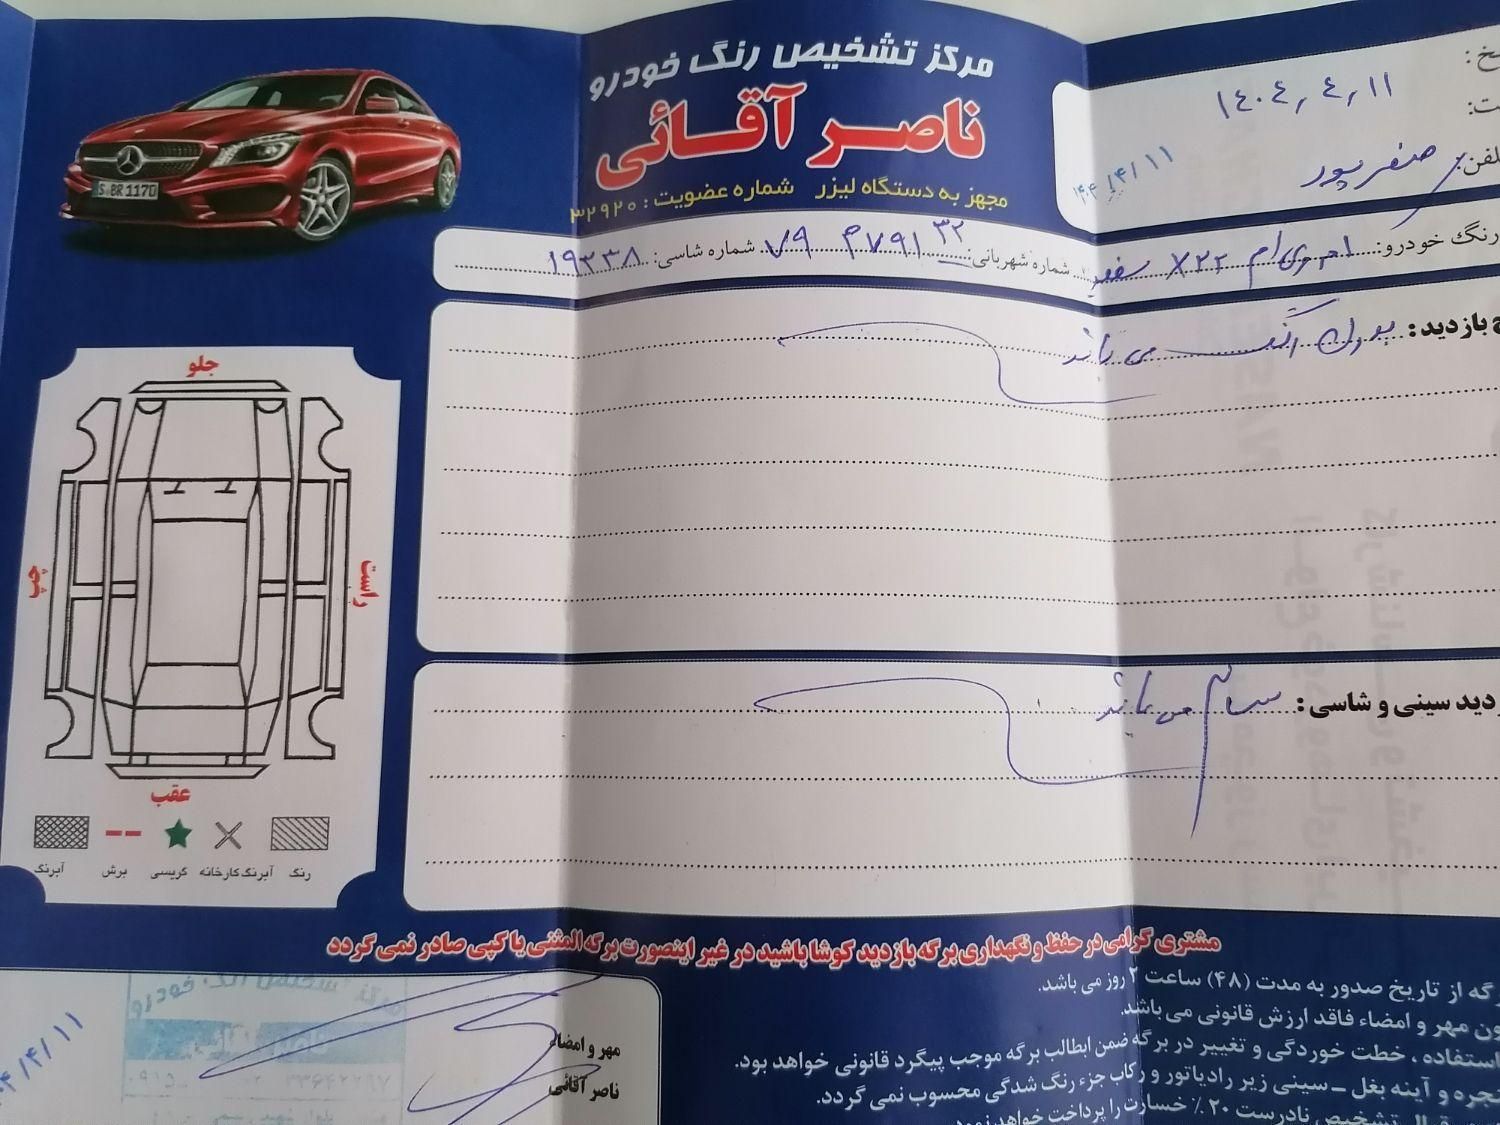 مرکز تشخیص رنگ خودرو
ناصر آقائی
مجهز به دستگاه لیزر شماره عضویت: ۳۲۹۲۰
۱۴۰۴,۴,۱۱
صفرپور
۱۴۰۴/۴/۱۱
رنگ خودرو: ام وی ام X۲۲ سفید شماره شهربانی: ۳۲ ۷۹ م ۷۹۱ شماره شاسی: ۱۹۳۳۸
بازدید: بدون رنگ می باشد
سینی و شاسی: سالم می باشد
S·BR 1170
جلو
چپ
راست
عقب
رنگ آبرنگ کارخانه گریسی برش آبرنگ
مشتری گرامی در حفظ و نگهداری برگه بازدید کوشا باشید در غیر اینصورت برگه المثنی یا کپی صادر نمی گردد
گه از تاریخ صدور به مدت (۴۸) ساعت ۲ روز می باشد.
ون مهر و امضاء فاقد ارزش قانونی می باشد.
استفاده ، خطت خوردگی و تغییر در برگه ضمن ابطالب برگه موجب پیگرد قانونی خواهد بود.
نجره و آینه بغل – سینی زیر رادیاتور و رکاب جزء رنگ شدگی محسوب نمی گردد.
تشخیص نادرست ۲۰٪ خسارت را پرداخت خواهد نمود.
مهر و امضاء
ناصر آقائی
مرکز تشخیص رنگ خودرو
۴/۴/۱۱